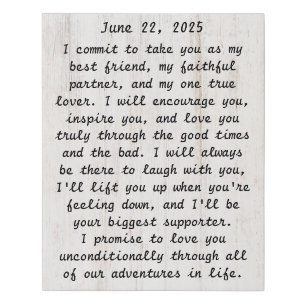 June 22, 2025
I commit to take you as my
best friend, my faithful
partner, and my one true
lover. I will encourage you,
inspire you, and love you
truly through the good times
and the bad. I will always
be there to laugh with you,
I'll lift you up when you're
feeling down, and I'll be
your biggest supporter.
I promise to love you
unconditionally through all
of our adventures in life.